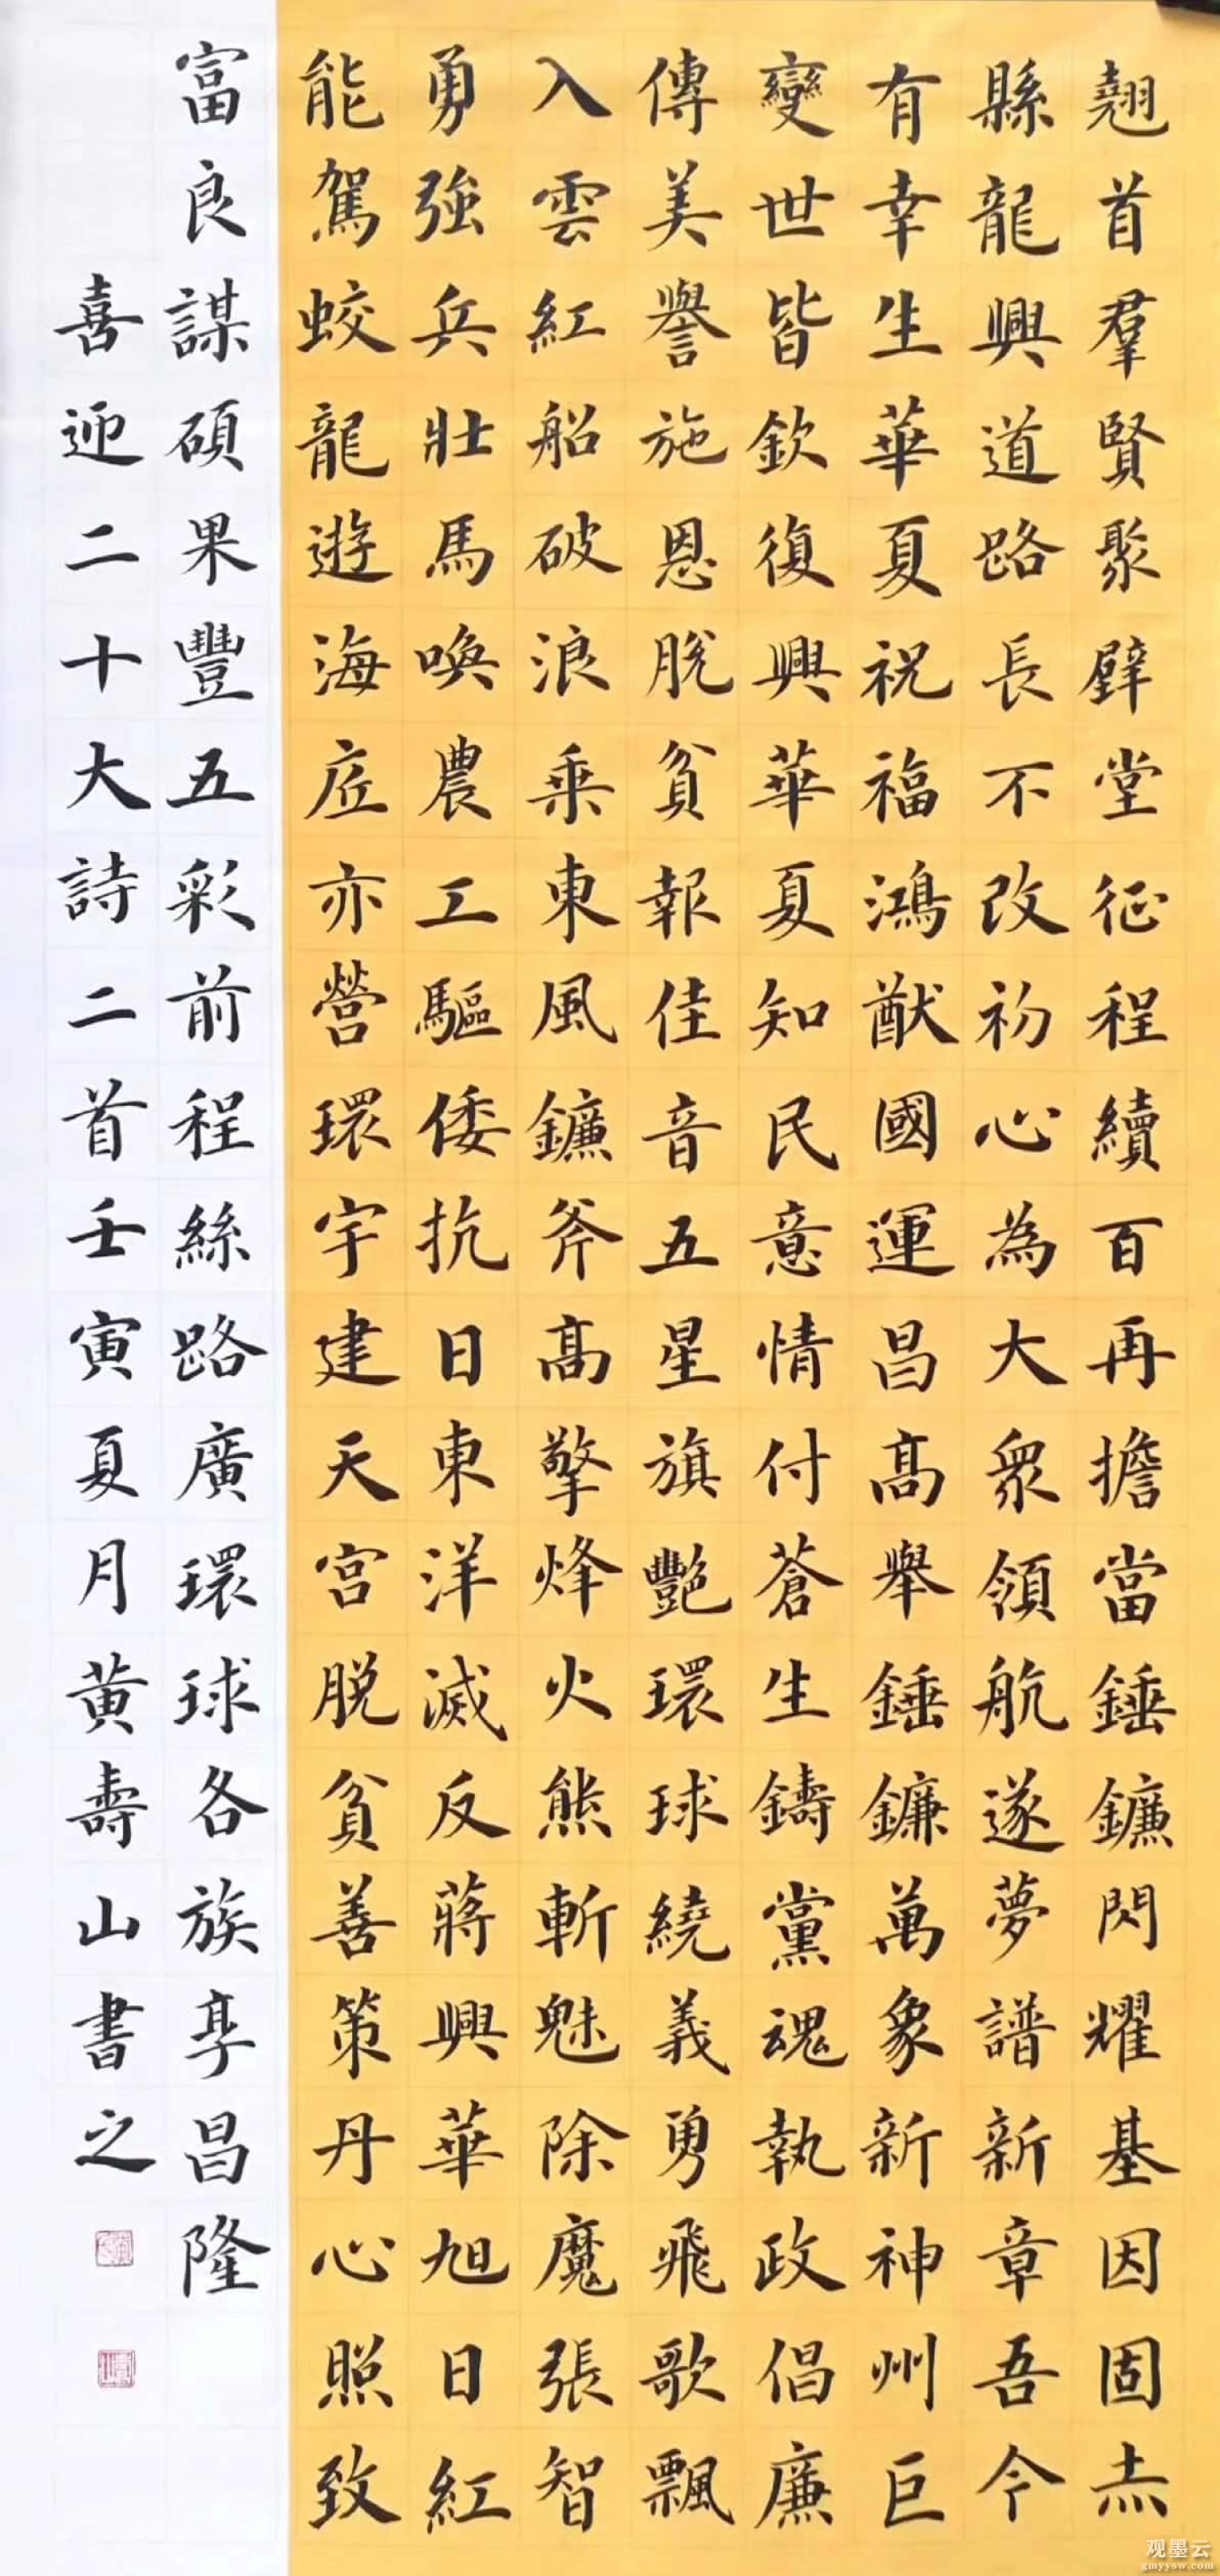 翹首羣賢聚堂征程續百再擔當錘鐮閃耀基因固赤
縣龍興道路長不改初心為大衆領航遂夢譜新章吾今
有幸生華夏祝福鴻猷國運昌髙舉錘鐮萬象新神州巨
變世皆欽復興華夏知民意情付蒼生鑄黨魂執政倡廉
傳美譽施恩脫貧報佳音五星旗艷環球繞義勇飛歌飄
入雲紅船破浪乘東風鐮斧髙擎烽火熊斬魅除魔張智
勇強兵壯馬喚農工驅倭抗日東洋滅反蔣興華旭日紅
能駕蛟龍遊海底亦營環宇建天宮脫貧善策丹心照致
富良謀碩果豐五彩前程絲路廣環球各族享昌隆
喜迎二十大詩二首壬寅夏月黄壽山書之
观墨云
gmyysw.com